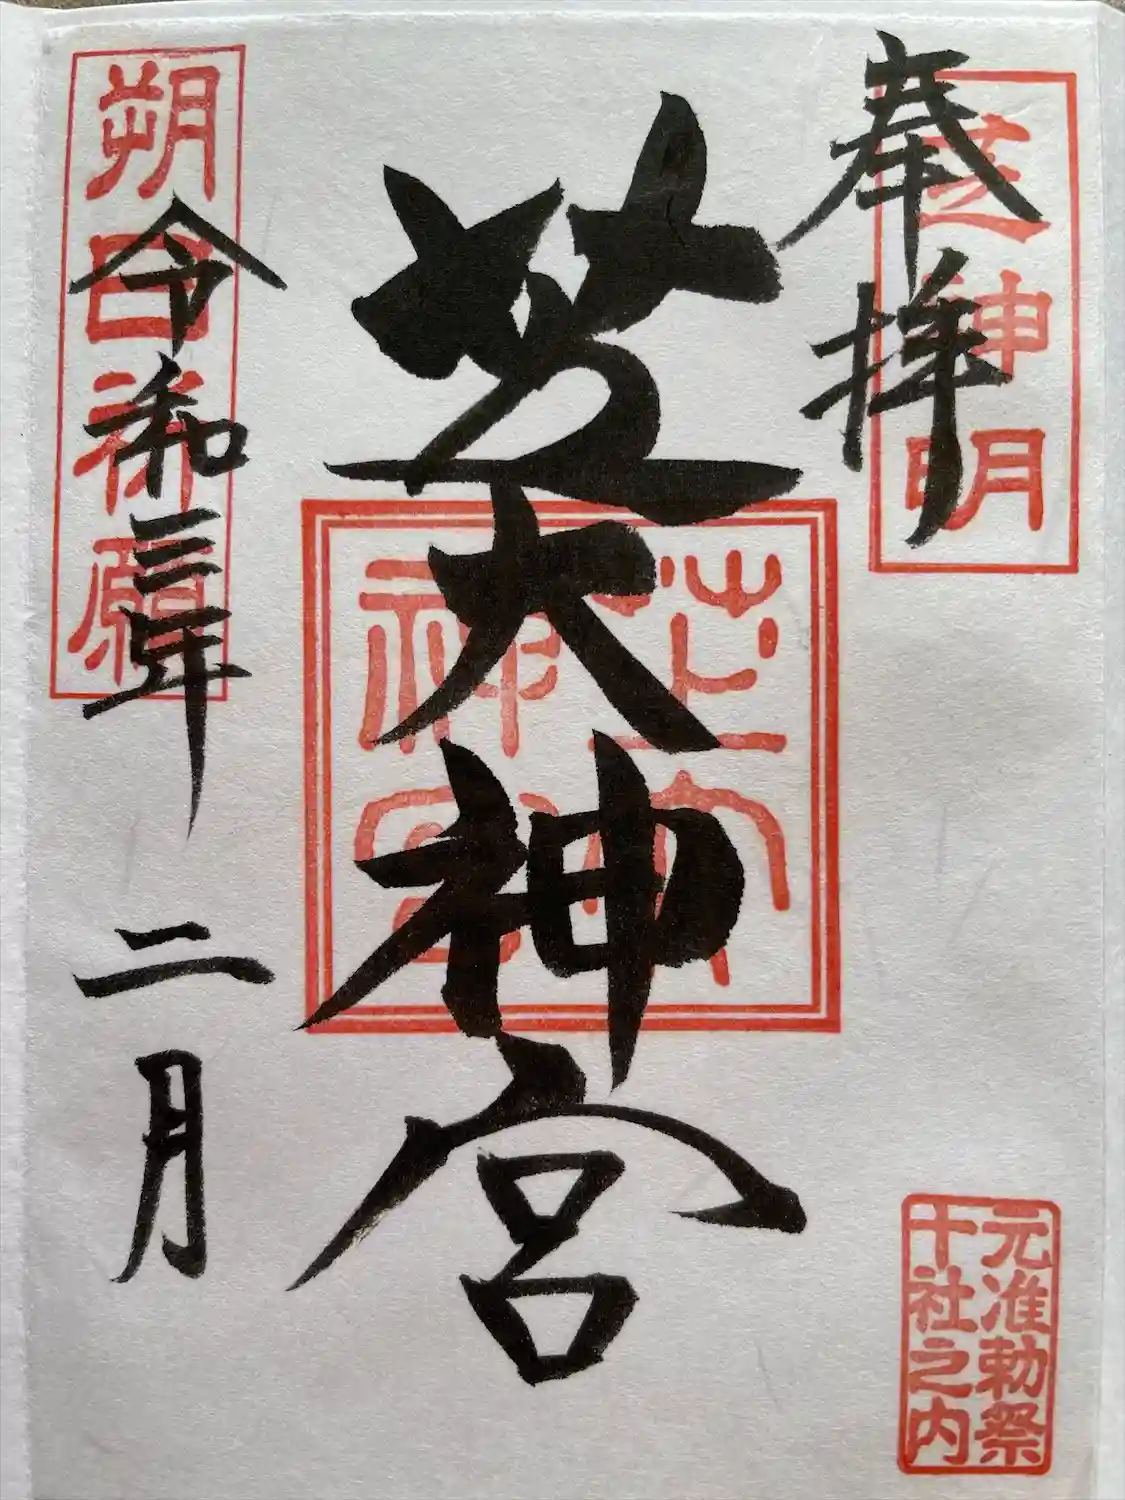 奉拝
芝神明
芝大神宮
芝大
神宮
朔日祈願
令和三年
二月
元准勅祭
十社之内